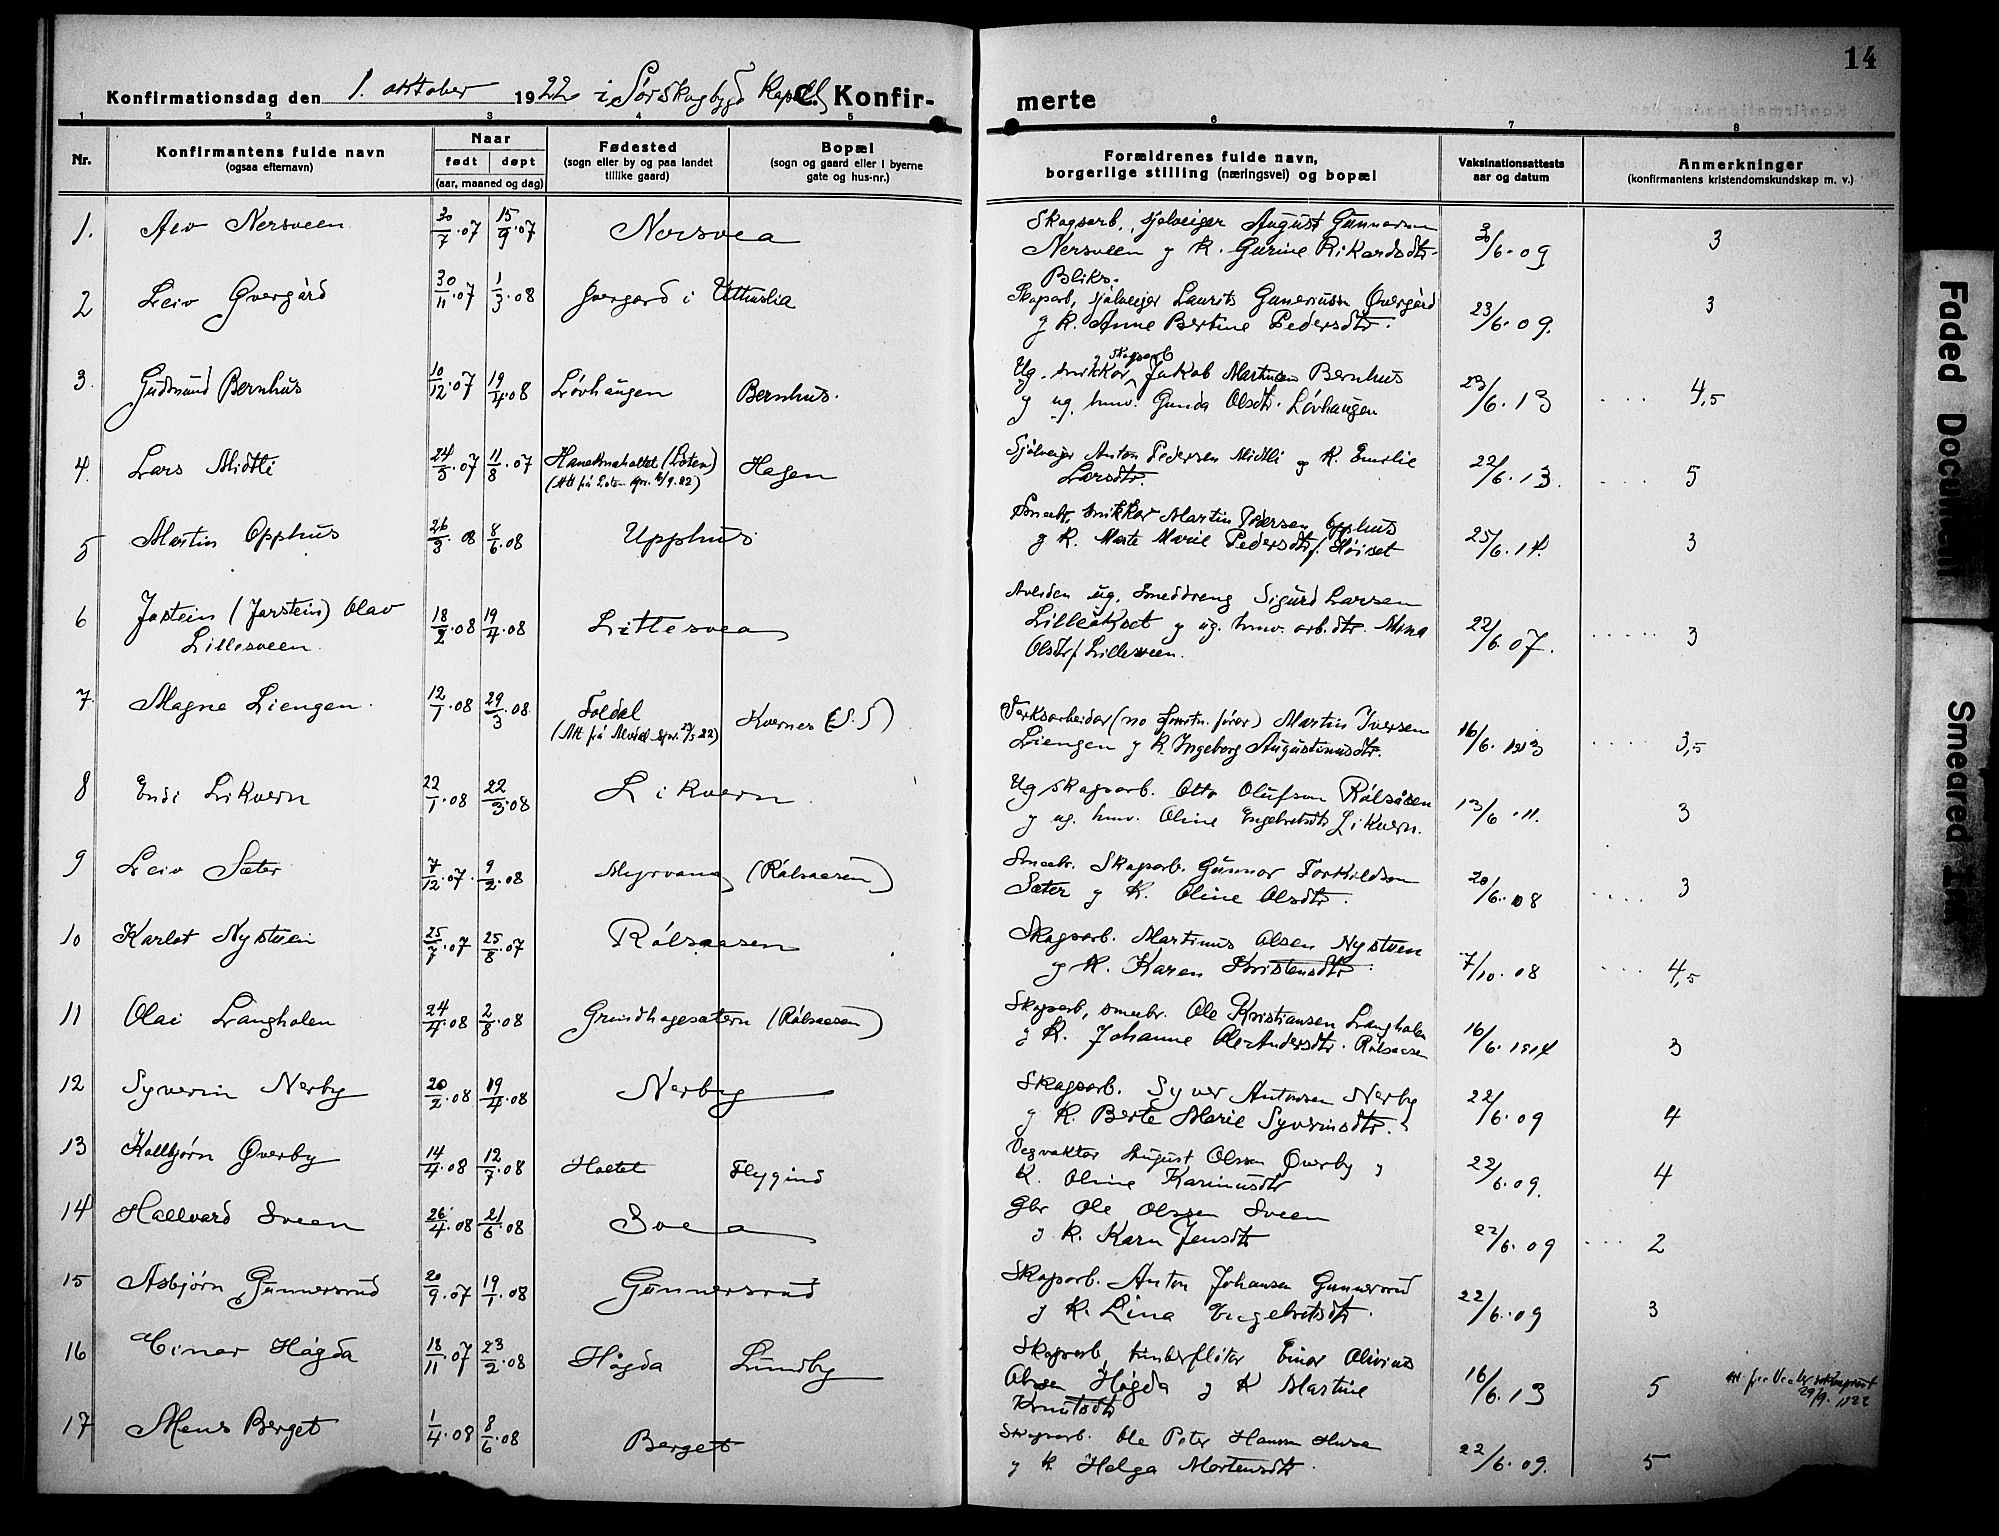 14
Konfirmationsdag den 1. oktober 1922 i Sørskogbygd Kapell. C. Konfir-
merte
1 2 3 4 5 6 7 8
Nr.
Konfirmantens fulde navn
(ogsaa efternavn)
Naar
født døpt
(aar, maaned og dag)
Fødested
(sogn eller by og paa landet
tillike gaard)
Bopæl
(sogn og gaard eller i byerne
gate og hus-nr.)
Forældrenes fulde navn,
borgerlige stilling (næringsvei) og bopæl
Vaksinationsattests
aar og datum
Anmerkninger
(konfirmantens kristendomskundskap m. v.)
1. Nersveen 30/7.07 15/9.07 Norsvea Skogsarb., sjølveiger August Gunnarsen
Nersveen g K. Gurine Rikardsdtr. 6.09 3
Bliks.
2 Leiv Øvergård 30/11.07 1/3.08 Øvergård i Uthuslia Skogsarb, sjølveiger Laurits Gunerius Øvergård
g K. Anne Bertine Pedersdtr. 23/6.09. 3
3. Gudmund Bernhus 10/12.07 19/4.08 Løvhaugen Bernhus. Ug. snikkar g skogsarb Jakob Martinsen Bernhus
g ug. hmv. Gunda Olsdtr. Løvhaugen 23/6.13 4,5
4. Lars Midtli 24/5.07 11/8.07 (Løten) Hagen Sjølveiger Anton Pedersen Midtli g K. Emilie
Larsdtr. 22/6.13. 5
5 Martin Opphus 26/3.08 8/6.08 Upphus Småbr, snikkar Martin Pedersen Opphus
g K. Marte Marie Pedersdtr f. Høiset 25/6.14. 3
6 Jostein (Jarstein) Olav
Lillesveen. 18/2.08 19/4.08 Litlesvea Avliden ug. smeddreng Sigurd Larsen
g ug. hmv. arb.dtr.
Olsdtr f Lillesveen. 22/6.07. 3
7 Magne Liengen. 12/1.08 29/3.08 Foldal Kvernes (S.S) Verksarbeidar Martin Iversen
Liengen g K. Ingeborg Augustinusdtr. 16/6.1913 3,5
8 Likvern 22/1.08 22/3.08 Likvern Ug skogsarb. Otto Olufson Rålsåsen
g ug. hmv. Oline Engebretsdtr Likvern. 13/6.11. 3
9 Leiv Sæter 7/12.07. 9/2.08 Myrvang (Rålsaasen) Småbr. Skogsarb. Gunnar Torkildson
Sæter g K. Oline Olsdtr. 20/6.08 3
10 Karlot Nystuen 25/7.07 25/8.07 Rålsaasen Skogsarb. Martinus Olsen Nystuen
g K. Karen Kristensdtr. 7/10.08 4,5
11 Olai Langholen 24/4.08 2/8.08 Grindhagesætern (Rålsaasen) Skogsarb, småbr. Ole Kristiansen Langholen
g K. Johanne Ole-Andersdtr. Rålsaasen 16/6.1914 3
12 Syverin Nerby 20/2.08 19/4.08 Nerby Skogsarb. Syver Antonsen Nerby
g K. Berte Marie Syverinsdtr. 22/6.09 4
13 Kolbjørn Øverby 14/4.08 12/7.08 Holtet Flygind Vegvaktar August Olsen Øverby g
K. Oline Karinusdtr 22/6.09. 4
14 Hallvard Sveen 26/4.08 21/6.08 Svea Gbr Ole Olsen Sveen
g K. Karn Jensdtr 22/6.09 2
15 Asbjørn Gunnersrud 20/9.07 19/1.08 Gunnersrud Skogsarb. Anton Johansen Gunnersrud
g K. Lina Engebretsdtr. 22/6.09 3
16 Einar Høgda 18/11.07 23/2.08 Høgda Lundby Skogsarb, tømberfløtar Einar Olivius
Olsen Høgda g K Martine
Knutsdtr 16/6.13 5
17 Mens Berget 1/4.08 8/6.08 Berget Skogsarb. Ole Peter Hansen
g K Helga Mortensdtr. 22/6.09. 5
Faded Document
Smeared Ink